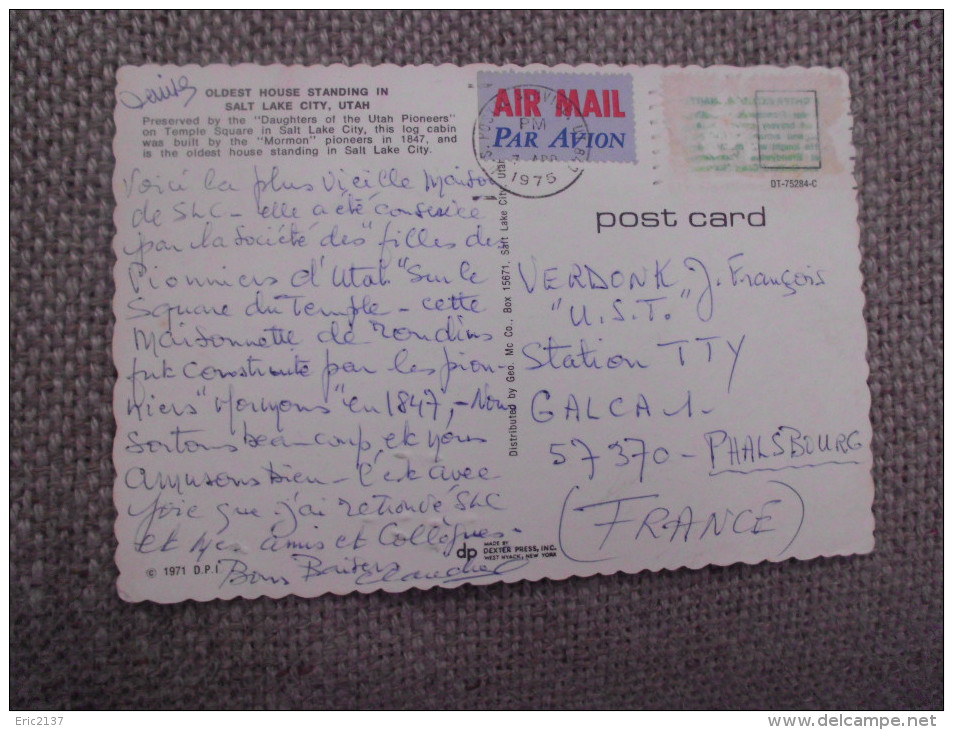 OLDEST HOUSE STANDING IN
SALT LAKE CITY, UTAH
Preserved by the "Daughters of the Utah Pioneers"
on Temple Square in Salt Lake City, this log cabin
was built by the "Mormon" pioneers in 1847, and
is the oldest house standing in Salt Lake City.
Voici la plus vieille Maison
de SLC - elle a été conservée
par la Société des "filles des
Pionniers d'Utah" sur le
Square du Temple - cette
Maisonnette de rondins
fut construite par les pion-
niers "Mormons" en 1847, - Nous
sortons beaucoup et nous
amusons bien - C'est avec
joie que j'ai retrouvé SLC
et mes amis et Collègues -
Bons Baisers
© 1971 D.P.I
dp MADE BY
DEXTER PRESS, INC.
WEST NYACK, NEW YORK
Distributed by Geo. Mc Co., Box 15671, Salt Lake City, Utah
AIR MAIL
PAR AVION
PM
7 APR
1975
DT-75284-C
post card
VERDONK J. François
"U.S.T."
Station TTY
GALCA 1 -
57370 - PHALSBOURG
(FRANCE)
Eric2137
http://www.delcampe.net